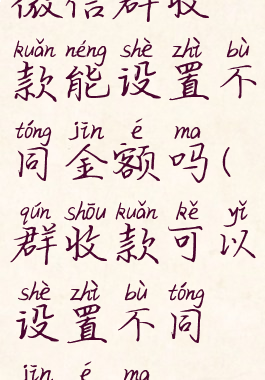 微信群收
kuǎn néng shè zhì bù
款能设置不
tóng jīn é ma
同金额吗(
qún shōu kuǎn kě yǐ
群收款可以
shè zhì bù tóng
设置不同
jīn é ma